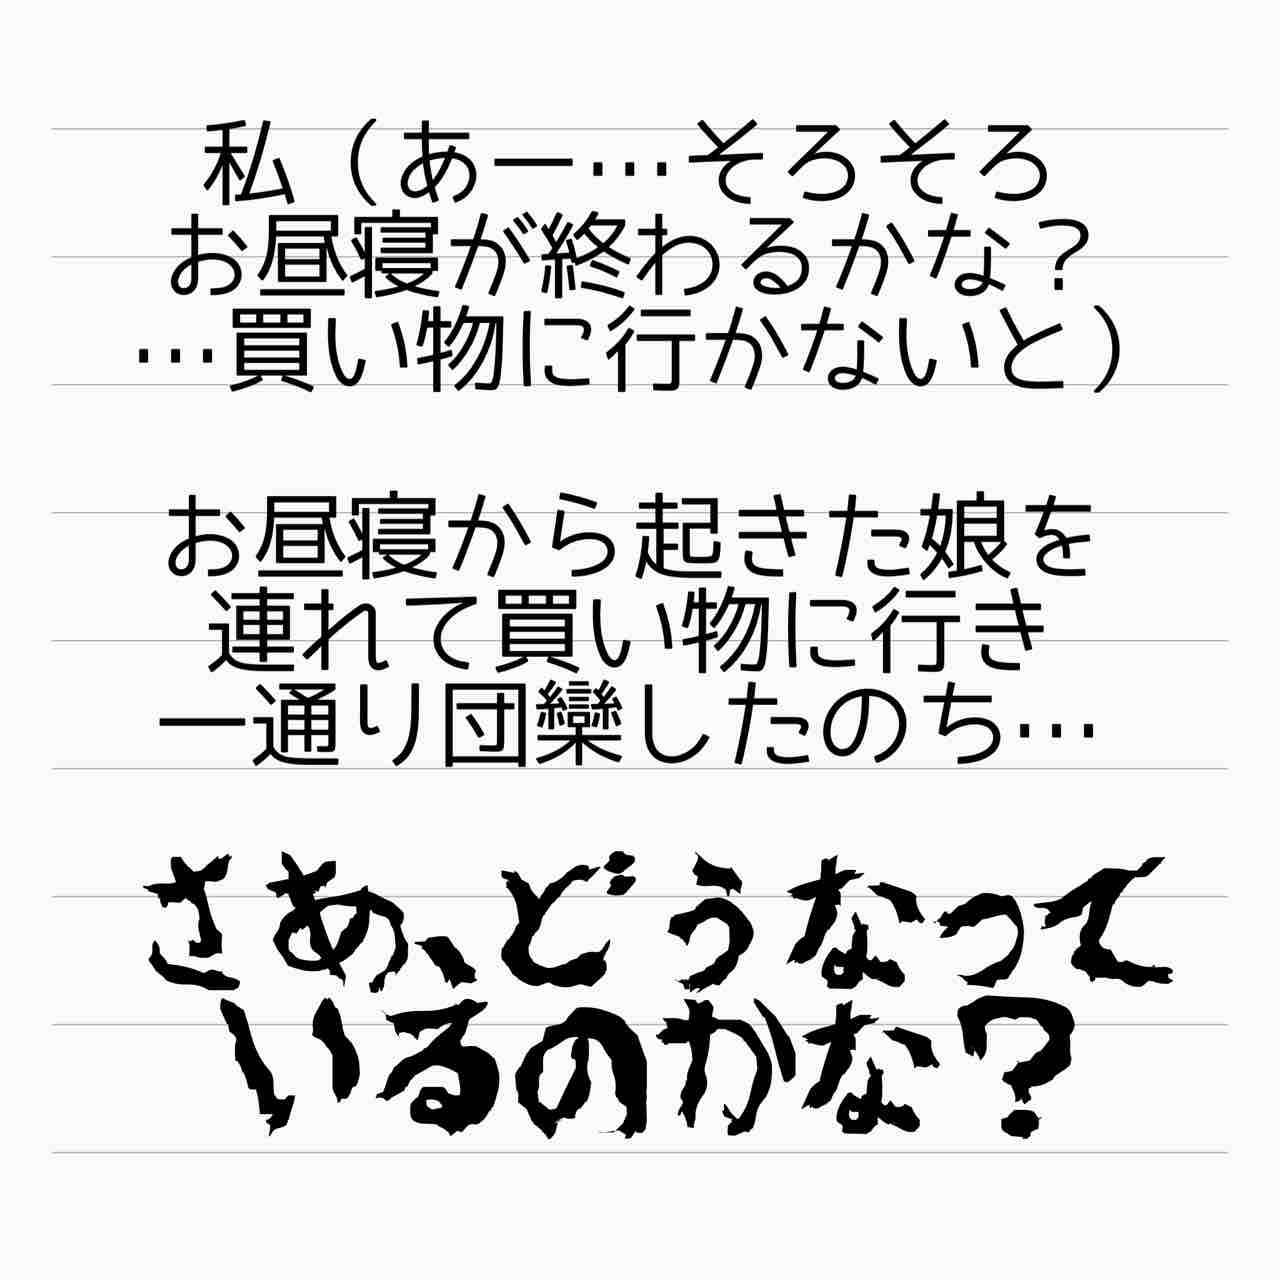 私（あー…そろそろ
お昼寝が終わるかな？
…買い物に行かないと）
お昼寝から起きた娘を
連れて買い物に行き
一通り団欒したのち…
さあ、どうなって
いるのかな？